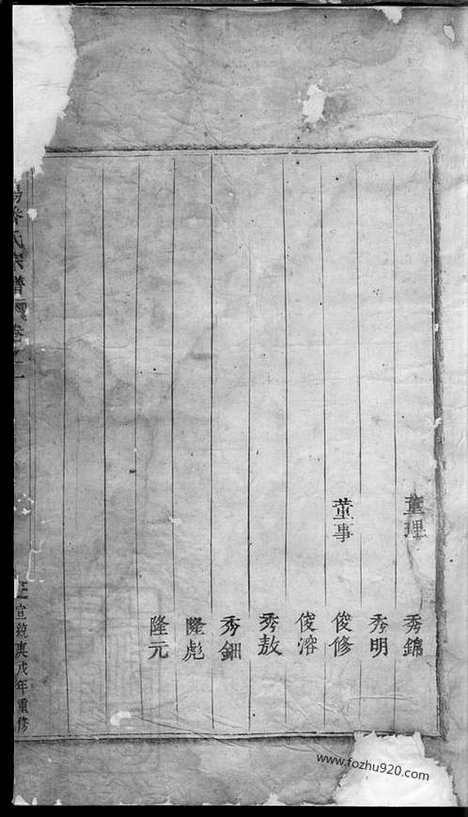 董理
秀錦
秀明
董事
俊修
俊溶
秀敖
秀鈿
隆彪
隆元
氏宗譜
卷之一
宣統庚戌年重修
www.fozhu920.com